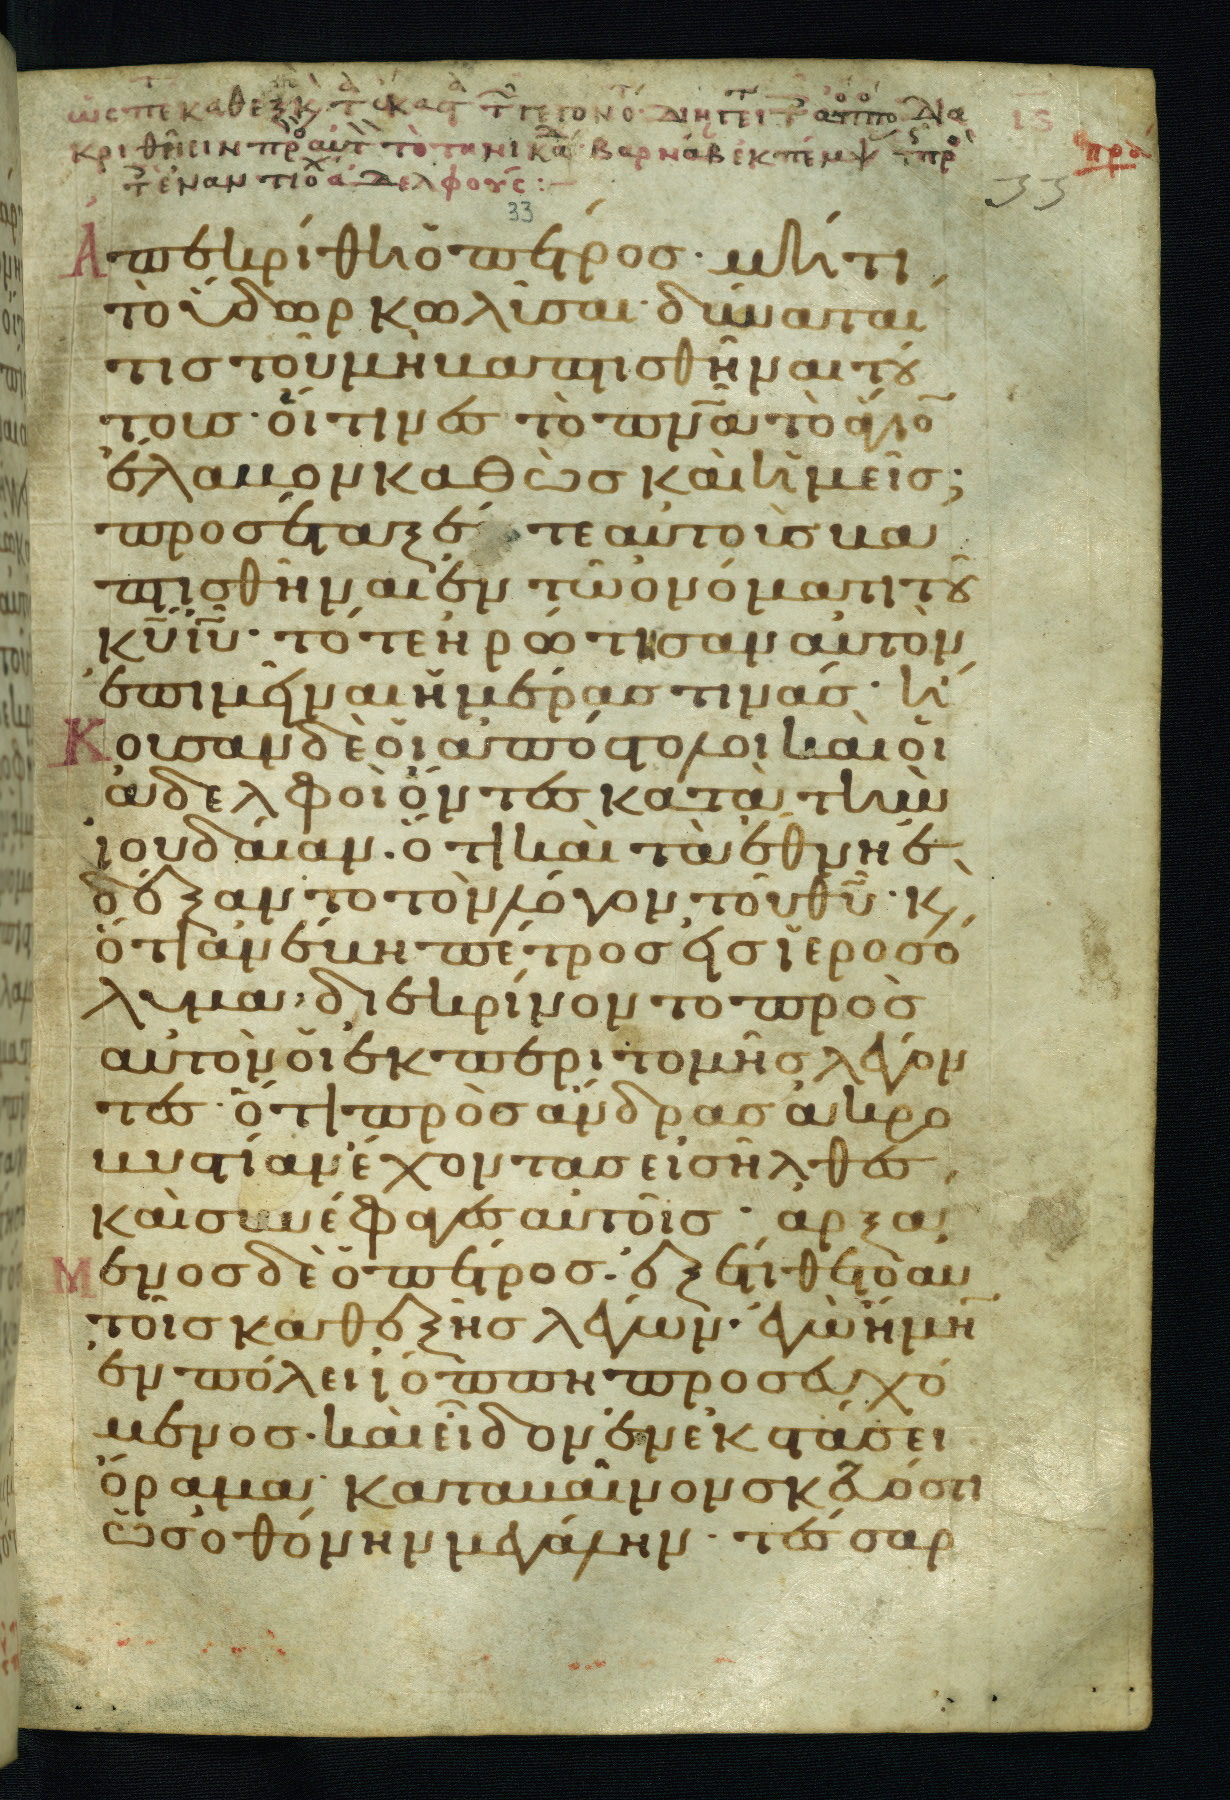 33
33
Ἀπεκρίθη ὁ πέτρος· μή τι
τὸ ὕδωρ κωλῦσαι δύναται
τὶς τοῦ μὴ βαπτισθῆναι τού
τοις· οἵτινες τὸ πν̄α τὸ ἅγιον
ἔλαβον καθὼς καὶ ἡμεῖς;
προσέταξέ τε αὐτοὺς βα
πτισθῆναι ἐν τῷ ὀνόματι τοῦ
κ̄υ ῑυ· τότε ἠρώτησαν αὐτὸν
ἐπιμεῖναι ἡμέρας τινάς· ἤ
Κουσαν δὲ οἱ ἀπόστολοι καὶ οἱ
ἀδελφοὶ ὄντες κατὰ τὴν
ἰουδαίαν. ὅτι καὶ τὰ ἔθνη ἐ
δέξαντο τὸν λόγον τοῦ θ̄υ· κ,
ὅτι ἀνέβη πέτρος εἰς ἱεροσό
λυμα, διεκρίνοντο πρὸς
αὐτὸν οἱ ἐκ περιτομῆς λέγον
τες· ὅτι πρὸς ἄνδρας ἀκρο
βυστίαν ἔχοντας εἰσῆλθες,
καὶ συνέφαγες αὐτοῖς· ἀρξά
Μενος δὲ ὁ πέτρος. ἐξετίθετο αυ
τοῖς καθεξῆς λέγων· ἐγὼ ἤμην
ἐν πόλει ἰόππη προσευχό
μενος. καὶ εἶδον ἐν ἐκστάσει
ὅραμα· καταβαῖνον σκεῦός τι
ὡς ὀθόνην μεγάλην· τέσσαρ